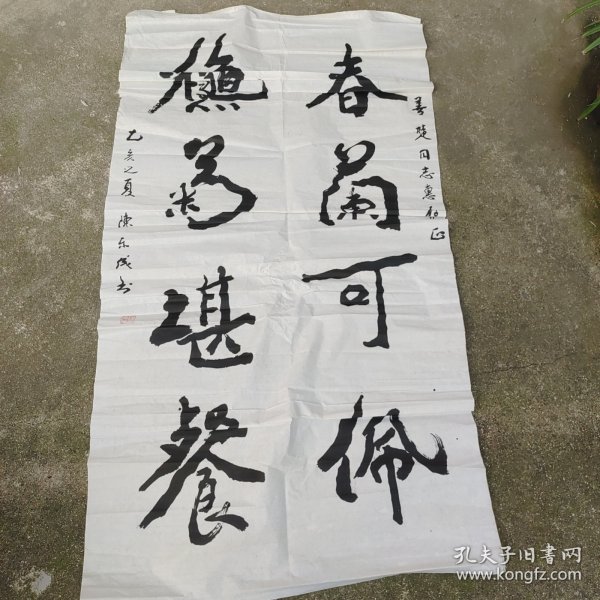 善楚同志惠存 正
春蘭可佩
龝菊堪餐
乙亥之夏 陳東成書
孔夫子旧書网
www.kongfz.com